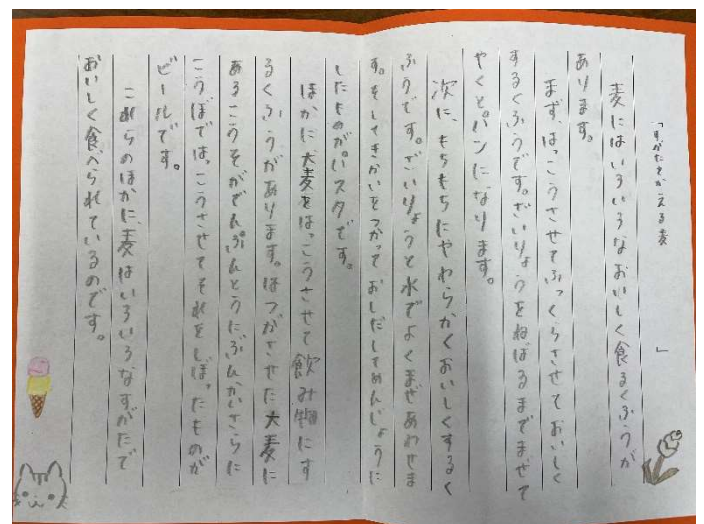 「すがたをかえる麦」
麦にはいろいろなおいしく食るくふうが
あります。
まず、はっこうさせてふっくらさせておいしく
するくふうです。ざいりょうをねばるまでまぜて
やくとパンになります。
次に、もちもちにやわらかくおいしくするく
ふうです。ざいりょうと水でよくまぜあわせま
す。そしてきかいをつかっておしだしてめんじょうに
したものがパスタです。
ほかに、大麦をはっこうさせて飲み物にす
るくふうがあります。はつがさせた大麦に
あるこうそがでんぷんとうにぶんかいさらに
こうぼではっこうさせてそれをしぼったものが
ビールです。
これらのほかに、麦はいろいろなすがたで
おいしく食べられているのです。